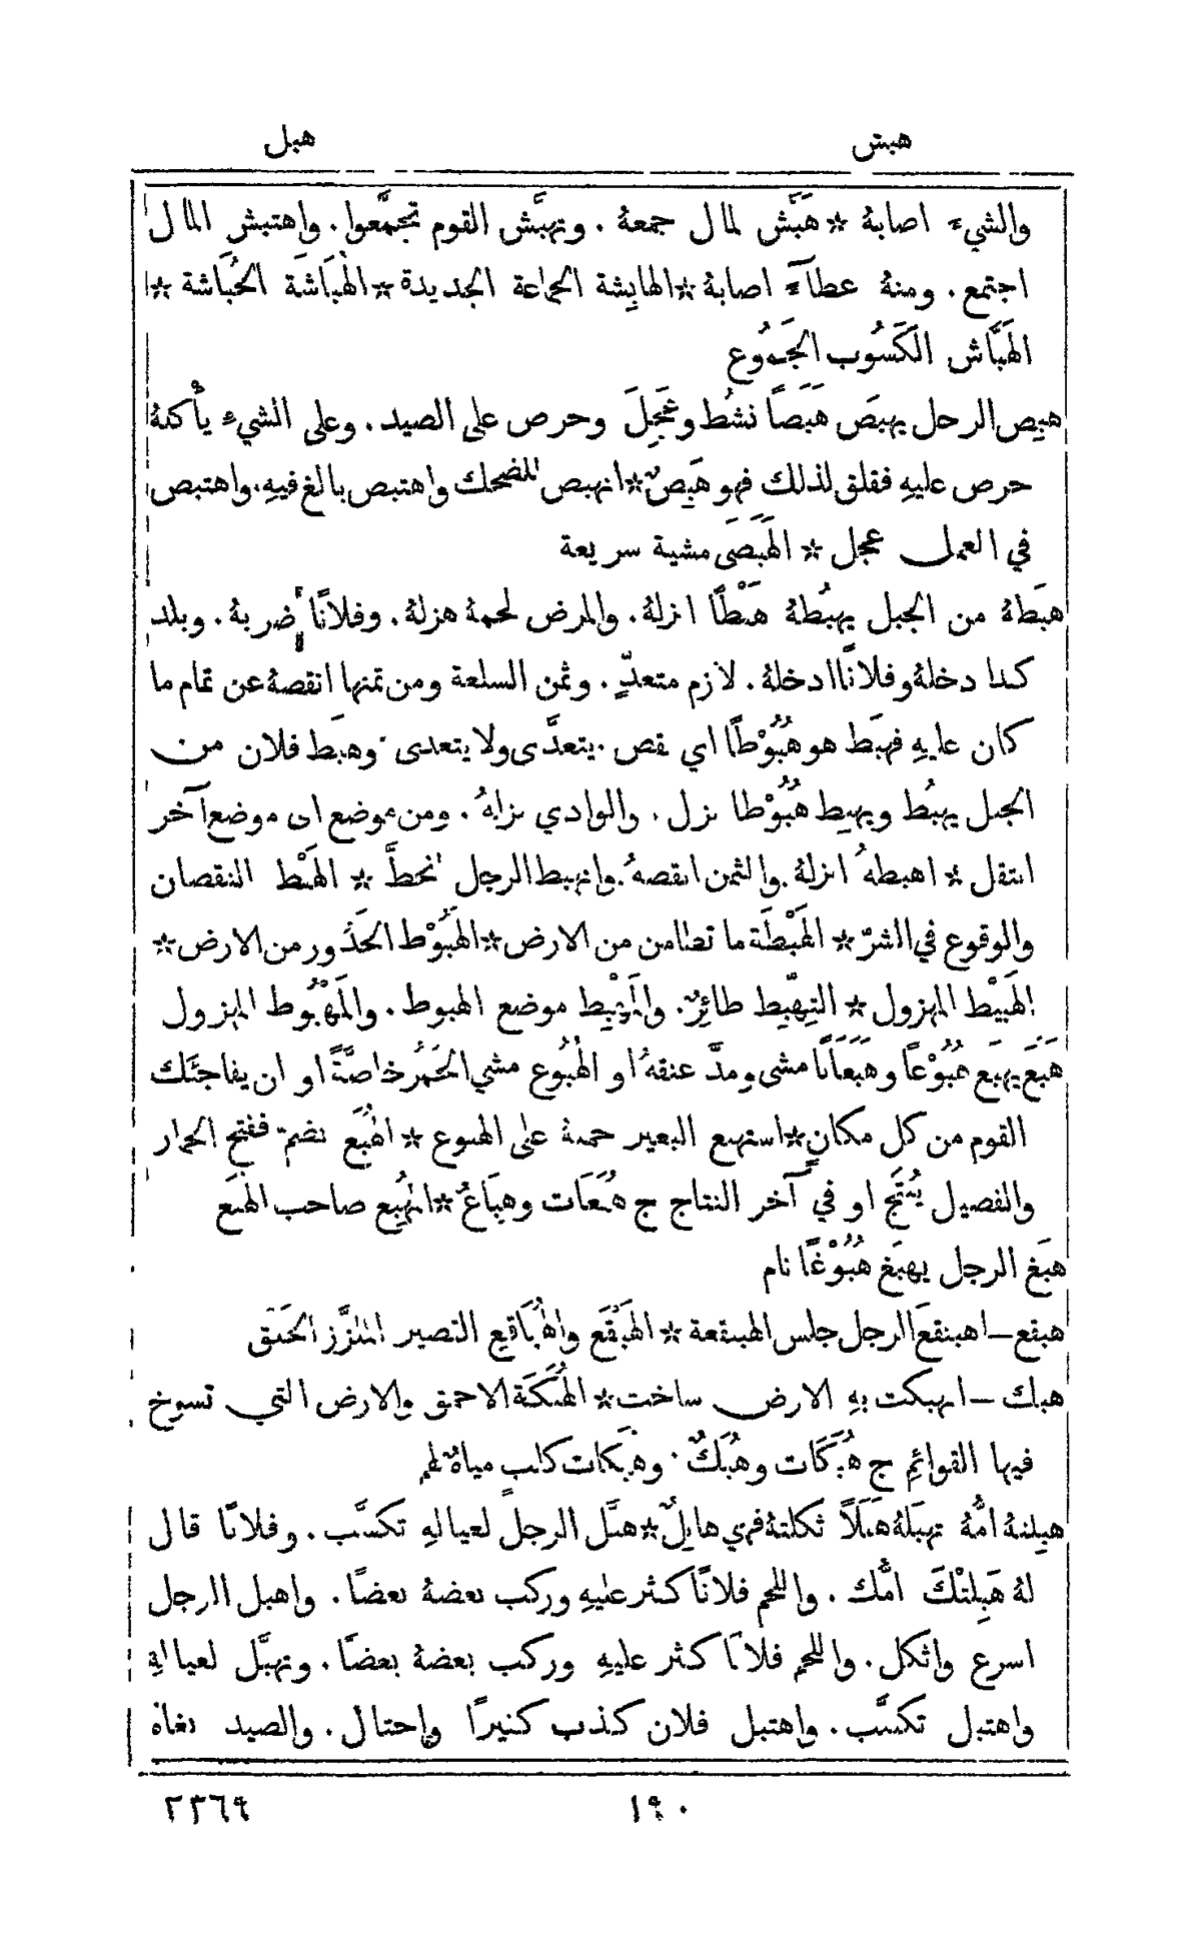 هبش
هبل
والشيءَ اصابهُ * هَبَّش المال جمعهُ . وتهبَّش القوم تجمَّعوا . واهتبش المال
اجتمع . ومنهُ عطاءً اصابهُ * الهابِشة الجماعة الجديدة * الهُبَاشَة الحُبَاشة *
الهَبَّاش الكَسُوب الجَمُوع
هبِص الرجل يهبَص هَبَصًا نشُط وعَجِلَ وحرص على الصيد . وعلى الشيءِ يأْكلهُ
حرص عليهِ فقلق لذلك فهو هَبِصٌ * انهبص للضحك واهتبص بالغ فيهِ . واهتبص
في العمل عجل * الهَبَصَى مشية سريعة
هبَطهُ من الجبل يهبُطهُ هَبْطًا انزلهُ . والمرض لحمهُ هزلهُ . وفلانًا ضربهُ . وبلد
كذا دخلهُ وفلانًا ادخلهُ . لازم متعدٍّ . وثمن السلعة ومن ثمنها انقصهُ عن تمام ما
كان عليهِ فهبَط هو هُبُوْطًا اي نقص . يتعدَّى ولا يتعدى . وهبَط فلان من
الجبل يهبُط ويهبِط هُبُوْطا نزل . والوادي نزلهُ . ومن موضع الى موضع آخر
انتقل * اهبطهُ انزلهُ . والثمن انقصهُ . وانهبط الرجل انحطَّ * الهَبْط النقصان
والوقوع في الشرّ * الهَبْطَة ما تطامن من الارض * الهَبُوْط الحَدُور من الارض *
الهَبِيْط المهزول * التِهِبِّط طائِرٌ . والمَهْبِط موضع الهبوط . والمَهْبُوط المهزول
هَبَعَ يهبَع هُبُوْعًا وهَبَعَانًا مشى ومدَّ عنقهُ او الهُبُوع مشي الحُمُر خاصَّةً او ان يفاجئَك
القوم من كل مكانٍ * استهبع البعير حملهُ على الهبوع * الهُبَع بضمّ ففتح الحمار
والفصيل يُنْتَج او في آخر النتاج ج هُبَعَات وهِبَاعٌ * المُهبِع صاحب الهُبَع
هبَغ الرجل يهبَغ هُبُوْغًا نام
هبقع — اهبنقعَ الرجل جلس الهبنقعة * الهَبْقَع والهُبَاقِع القصير الملزَّز الخَلق
هبك — انهبكت بهِ الارض ساخت * الهُبَكَة الاحمق والارض التي تسوخ
فيها القوائِم ج هُبَكَات وهُبَكٌ . وهُبَكات كلبٍ مياهٌ لهم
هبِلتهُ امُّهُ تهبَلهُ هَبَلاً ثكلتهُ فهي هابِلٌ * هبَّل الرجل لعيالهِ تكسَّب . وفلانًا قال
لهُ هَبِلتْكَ امُّك . واللحم فلانًا كثر عليهِ وركب بعضهُ بعضًا . واهبل الرجل
اسرع واثكل . واللحم فلانًا كثر عليهِ وركب بعضهُ بعضًا . وتهبَّل لعيالهِ
واهتبل تكسَّب . واهتبل فلان كذب كثيرًا واحتال . والصيد بغاهُ
١٩٠
٢٣٦٩